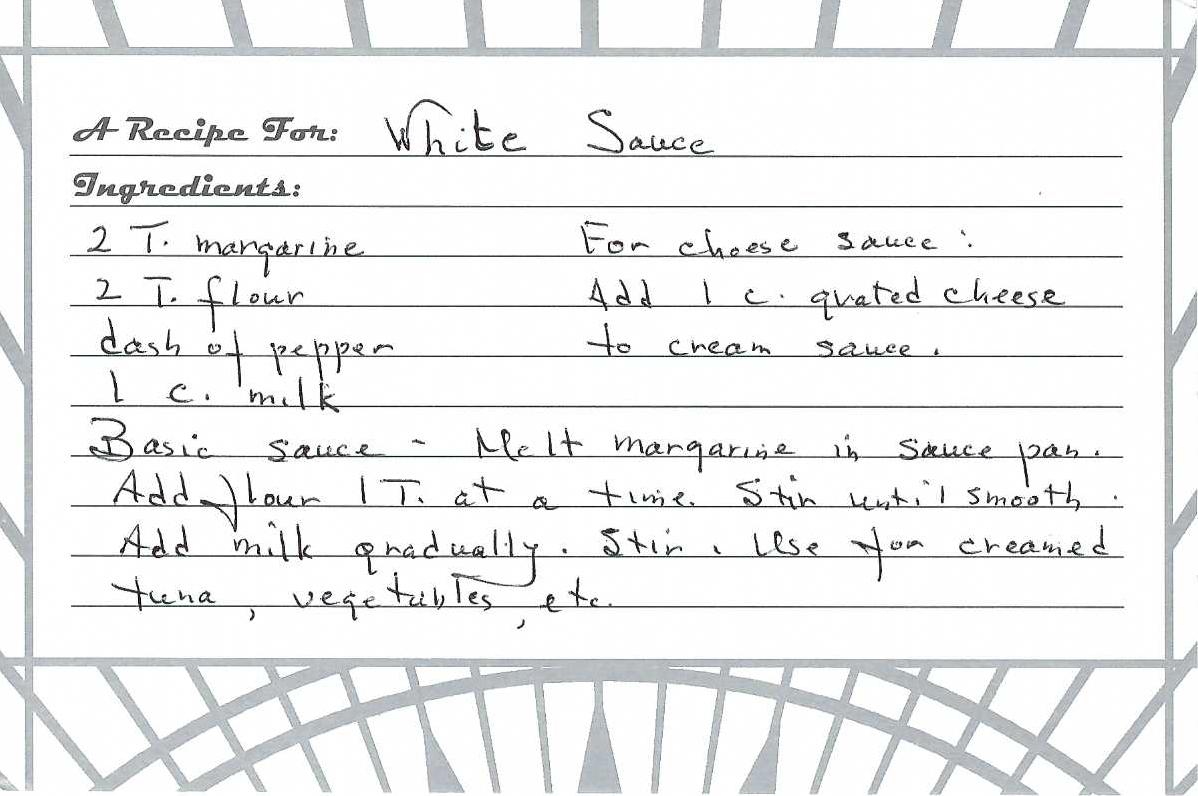 A Recipe For: White Sauce
Ingredients:
2 T. margarine
2 T. flour
dash of pepper
1 c. milk
For cheese sauce:
Add 1 c. grated cheese
to cream sauce.
Basic sauce - Melt margarine in sauce pan.
Add flour 1 T. at a time. Stir until smooth.
Add milk gradually. Stir. Use for creamed
tuna, vegetables, etc.